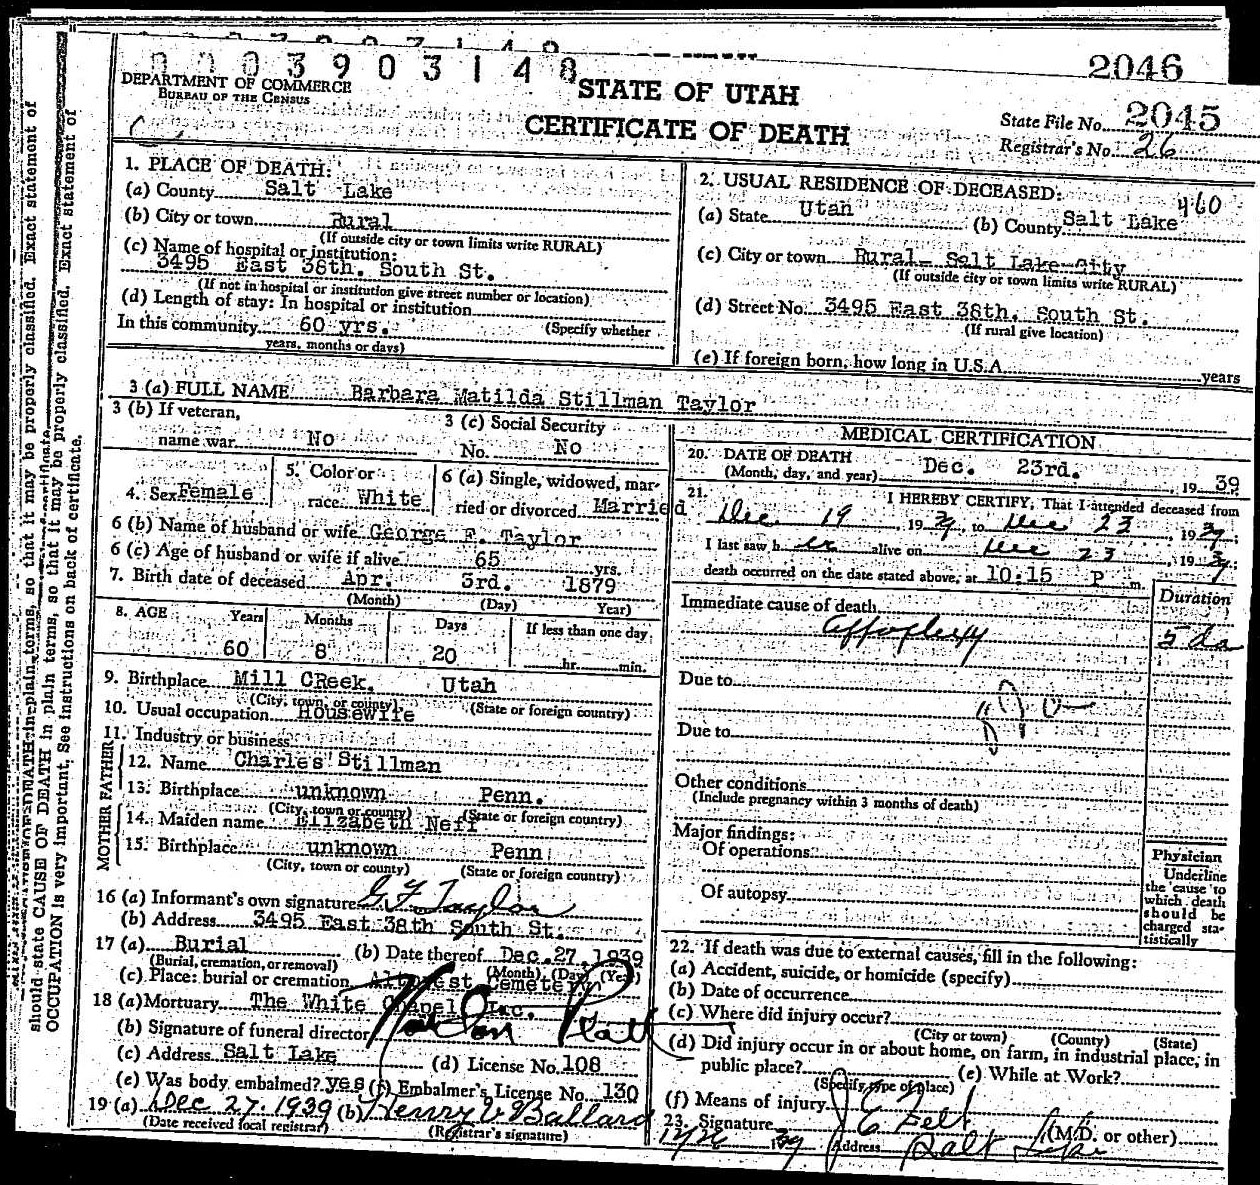 0003903148
2046
DEPARTMENT OF COMMERCE
BUREAU OF THE CENSUS
STATE OF UTAH
CERTIFICATE OF DEATH
State File No. 2045
Registrar's No. 26
1. PLACE OF DEATH:
(a) County Salt Lake
(b) City or town Rural
(If outside city or town limits write RURAL)
(c) Name of hospital or institution:
3495 East 38th. South St.
(If not in hospital or institution give street number or location)
(d) Length of stay: In hospital or institution
In this community 60 yrs. (Specify whether
years, months or days)
2. USUAL RESIDENCE OF DECEASED: 460
(a) State Utah (b) County Salt Lake
(c) City or town Rural- Salt Lake City
(If outside city or town limits write RURAL)
(d) Street No. 3495 East 38th. South St.
(If rural give location)
(e) If foreign born, how long in U.S.A. years
3 (a) FULL NAME Barbara Matilda Stillman Taylor
3 (b) If veteran,
name war No
3 (c) Social Security
No. No
4. Sex Female
5. Color or
race White
6 (a) Single, widowed, mar-
ried or divorced Married
6 (b) Name of husband or wife George F. Taylor
6 (c) Age of husband or wife if alive 65 yrs.
7. Birth date of deceased Apr. 3rd. 1879
(Month) (Day) Year)
8. AGE Years Months Days If less than one day
60 8 20 hr. min.
9. Birthplace Mill CReek. Utah
(City, town, or county) (State or foreign country)
10. Usual occupation Housewife
11. Industry or business
FATHER
12. Name Charles Stillman
13. Birthplace unknown Penn.
(City, town or county) (State or foreign country)
MOTHER
14. Maiden name Elizabeth Neff
15. Birthplace unknown Penn
(City, town or county) (State or foreign country)
16 (a) Informant's own signature G F Taylor
(b) Address 3495 East 38th South St.
17 (a) Burial (b) Date thereof Dec. 27, 1939
(Burial, cremation, or removal) (Month) (Day) (Year)
(c) Place: burial or cremation Cemetery
18 (a) Mortuary The White Chapel Inc.
(b) Signature of funeral director
(c) Address Salt Lake (d) License No. 108
(e) Was body embalmed? yes (f) Embalmer's License No. 130
19 (a) Dec 27. 1939 (b) Henry V Ballard
(Date received local registrar) (Registrar's signature)
MEDICAL CERTIFICATION
20. DATE OF DEATH
(Month, day, and year) Dec. 23rd. 19 39
21. I HEREBY CERTIFY, That I attended deceased from
Dec 19, 19 39, to Dec 23, 19 39;
I last saw h er alive on Dec 23, 19 39;
death occurred on the date stated above, at 10:15 P m.
Immediate cause of death Duration
Appoplexy 5 da
Due to
Due to
Other conditions
(Include pregnancy within 3 months of death)
Major findings:
Of operations
Of autopsy
Physician
Underline
the cause to
which death
should be
charged sta-
tistically
22. If death was due to external causes, fill in the following:
(a) Accident, suicide, or homicide (specify)
(b) Date of occurrence
(c) Where did injury occur?
(City or town) (County) (State)
(d) Did injury occur in or about home, on farm, in industrial place, in
public place? (e) While at Work?
(Specify type of place)
(f) Means of injury
23. Signature J E Felt (M.D. or other)
12/26 39 Address Salt Lake
should state CAUSE OF DEATH in plain terms, so that it may be properly classified. Exact statement of
OCCUPATION is very important. See instructions on back of certificate.